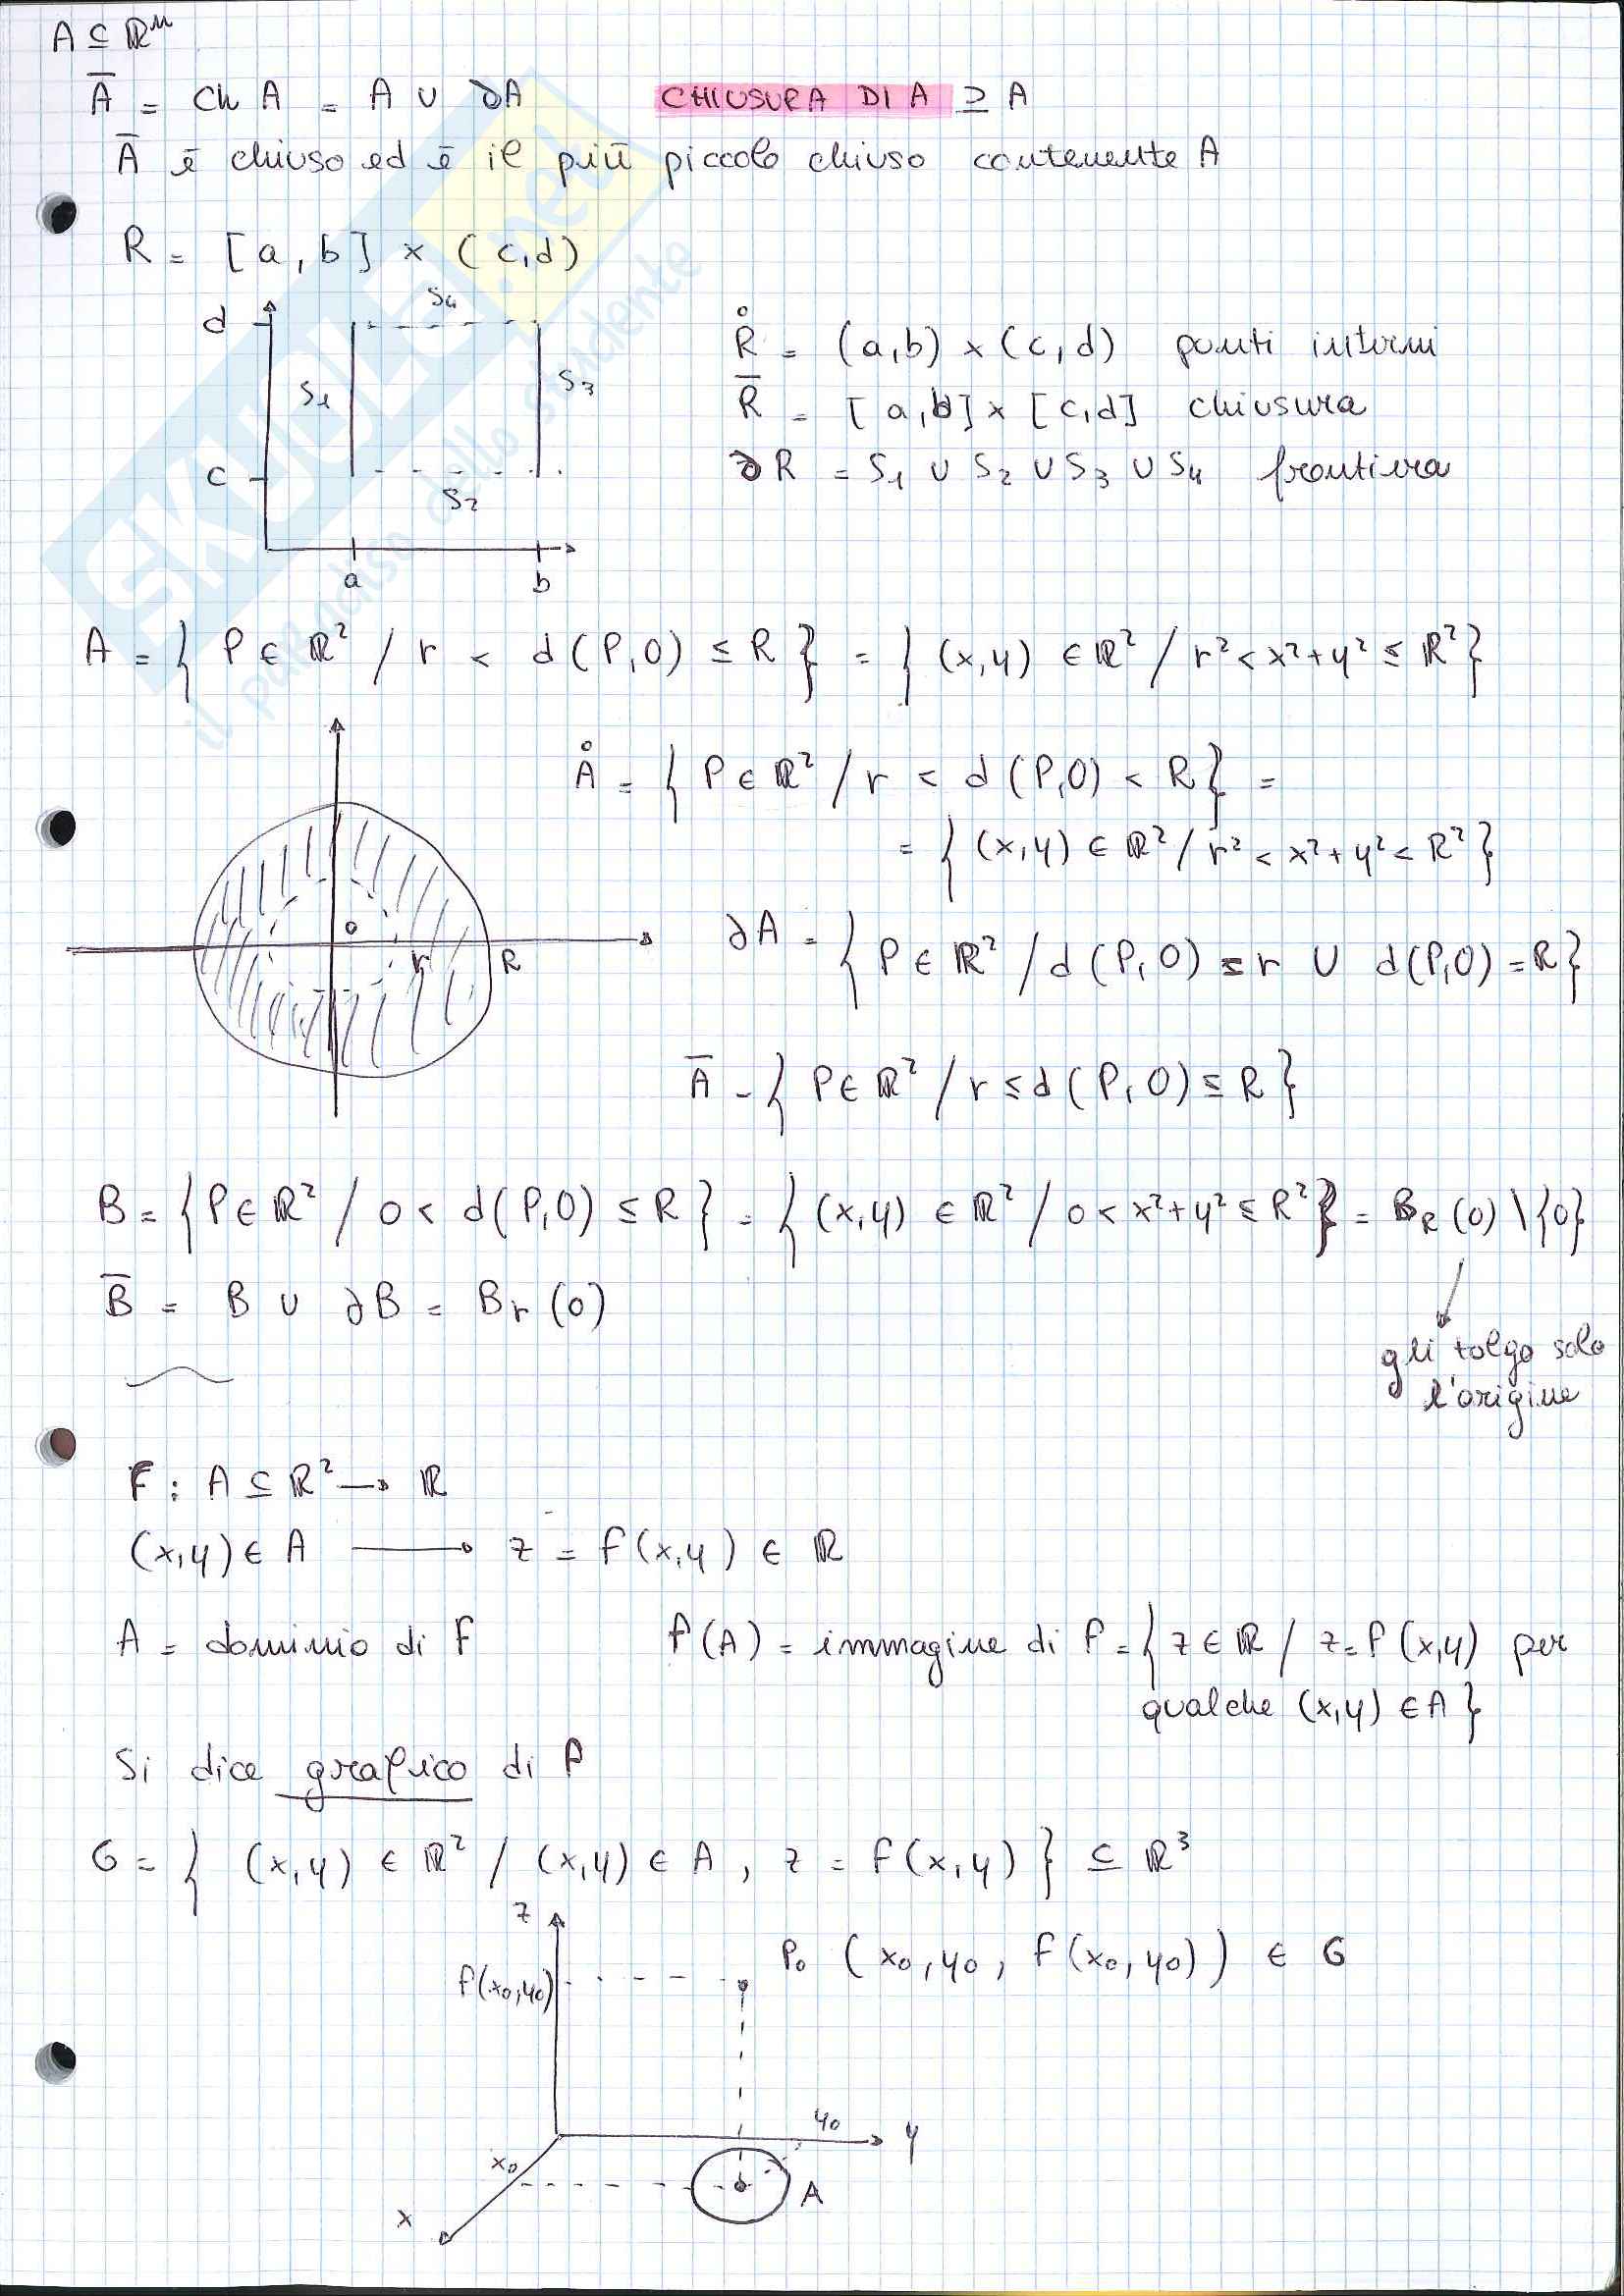 A ⊆ ℝⁿ
Ā = Ch A = A ∪ ∂A CHIUSURA DI A ⊇ A
Ā è chiuso ed è il più piccolo chiuso contenente A
R = [a, b] × (c, d)
d
S₄
S₁
S₃
c
S₂
a
b
R̊ = (a, b) × (c, d) punti interni
R̄ = [a, b] × [c, d] chiusura
∂R = S₁ ∪ S₂ ∪ S₃ ∪ S₄ frontiera
A = { P ∈ ℝ² / r < d(P, O) ≤ R } = { (x, y) ∈ ℝ² / r² < x² + y² ≤ R² }
Å = { P ∈ ℝ² / r < d(P, O) < R } =
= { (x, y) ∈ ℝ² / r² < x² + y² < R² }
o
r
R
∂A = { P ∈ ℝ² / d(P, O) = r ∪ d(P, O) = R }
Ā = { P ∈ ℝ² / r ≤ d(P, O) ≤ R }
B = { P ∈ ℝ² / 0 < d(P, O) ≤ R } = { (x, y) ∈ ℝ² / 0 < x² + y² ≤ R² } = B_R (0) \ {0}
B̄ = B ∪ ∂B = B_r (0)
gli tolgo solo
l'origine
F : A ⊆ ℝ² → ℝ
(x, y) ∈ A → z = f(x, y) ∈ ℝ
A = dominio di F f(A) = immagine di f = { z ∈ ℝ / z = f(x, y) per
qualche (x, y) ∈ A }
Si dice grafico di f
G = { (x, y) ∈ ℝ² / (x, y) ∈ A , z = f(x, y) } ⊆ ℝ³
z
P₀ (x₀, y₀, f(x₀, y₀)) ∈ G
f(x₀, y₀)
y₀
y
x₀
A
x
SKUOLA.net
il paradiso dello studente